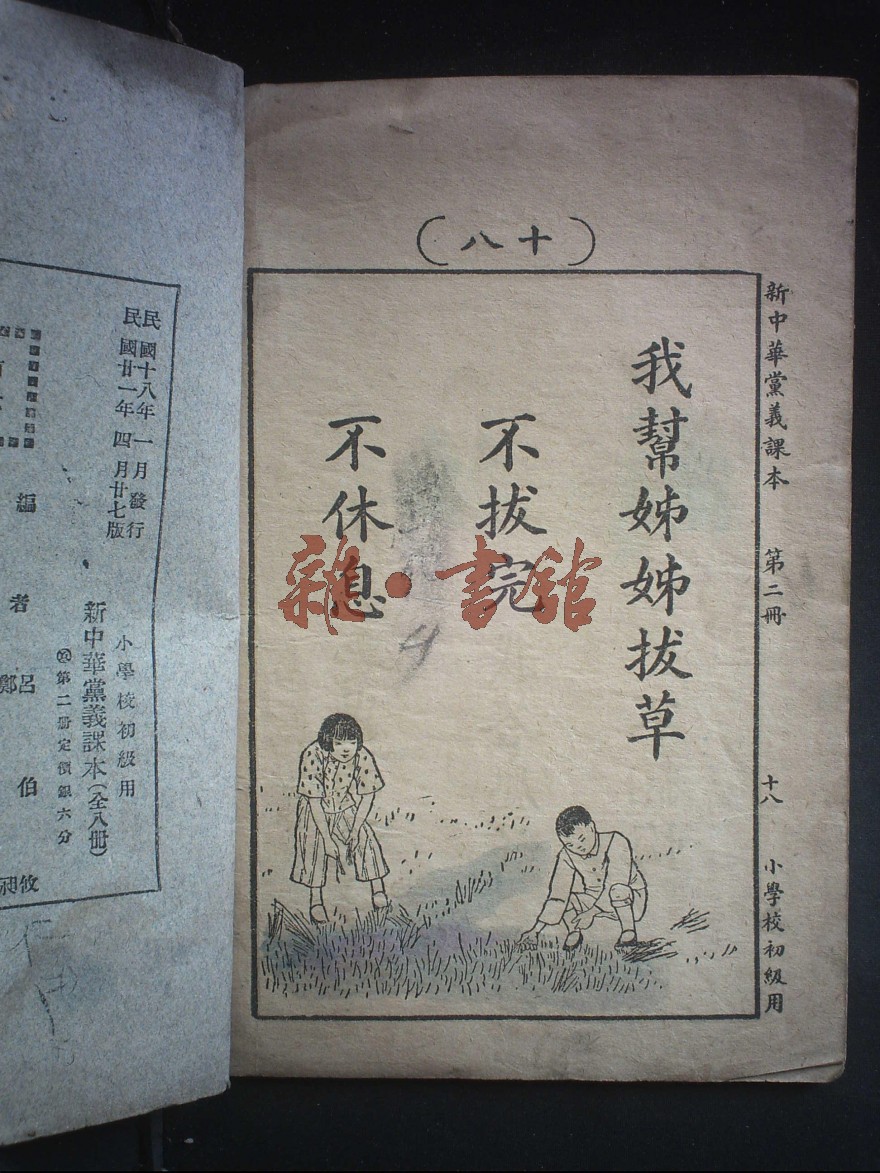 (八十)
我幫姊姊拔草
不拔完
不休息
新中華黨義課本 第二冊 十八 小學校初級用
雜·書館
4
民國十八年一月發行
民國廿一年四月廿七版
小學校初級用
新中華黨義課本(全八冊)
第二冊定價銀六分
編者 呂伯攸
鄭